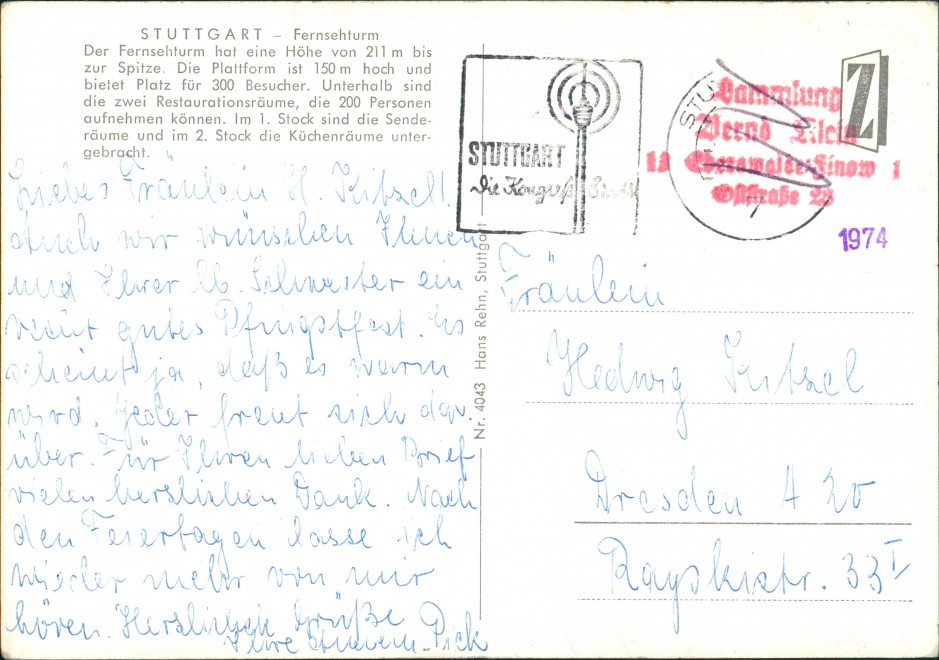 STUTTGART – Fernsehturm
Der Fernsehturm hat eine Höhe von 211 m bis
zur Spitze. Die Plattform ist 150 m hoch und
bietet Platz für 300 Besucher. Unterhalb sind
die zwei Restaurationsräume, die 200 Personen
aufnehmen können. Im 1. Stock sind die Sende-
räume und im 2. Stock die Küchenräume unter-
gebracht.
Liebes Fräulein H. Kitzel!
Auch wir wünschen Ihnen
und Ihrer lb. Schwester ein
recht gutes Pfingstfest. Es
scheint ja, daß es warm
wird. Jeder freut sich dar-
über. Für Ihren lieben Brief
vielen herzlichen Dank. Nach
den Feiertagen lasse ich
wieder mehr von mir
hören. Herzlichste Grüße
Ihre
Nr. 4043 Hans Rehn, Stuttgart
STUTTGART
Die Kongreß-Stadt
STU
7
Z
Sammlung
Bernd Klein
13 Eberswalde-Finow 1
Oststraße 28
1974
Fräulein
Hedwig Kitzel
Dresden A 20
Rayskistr. 33 I